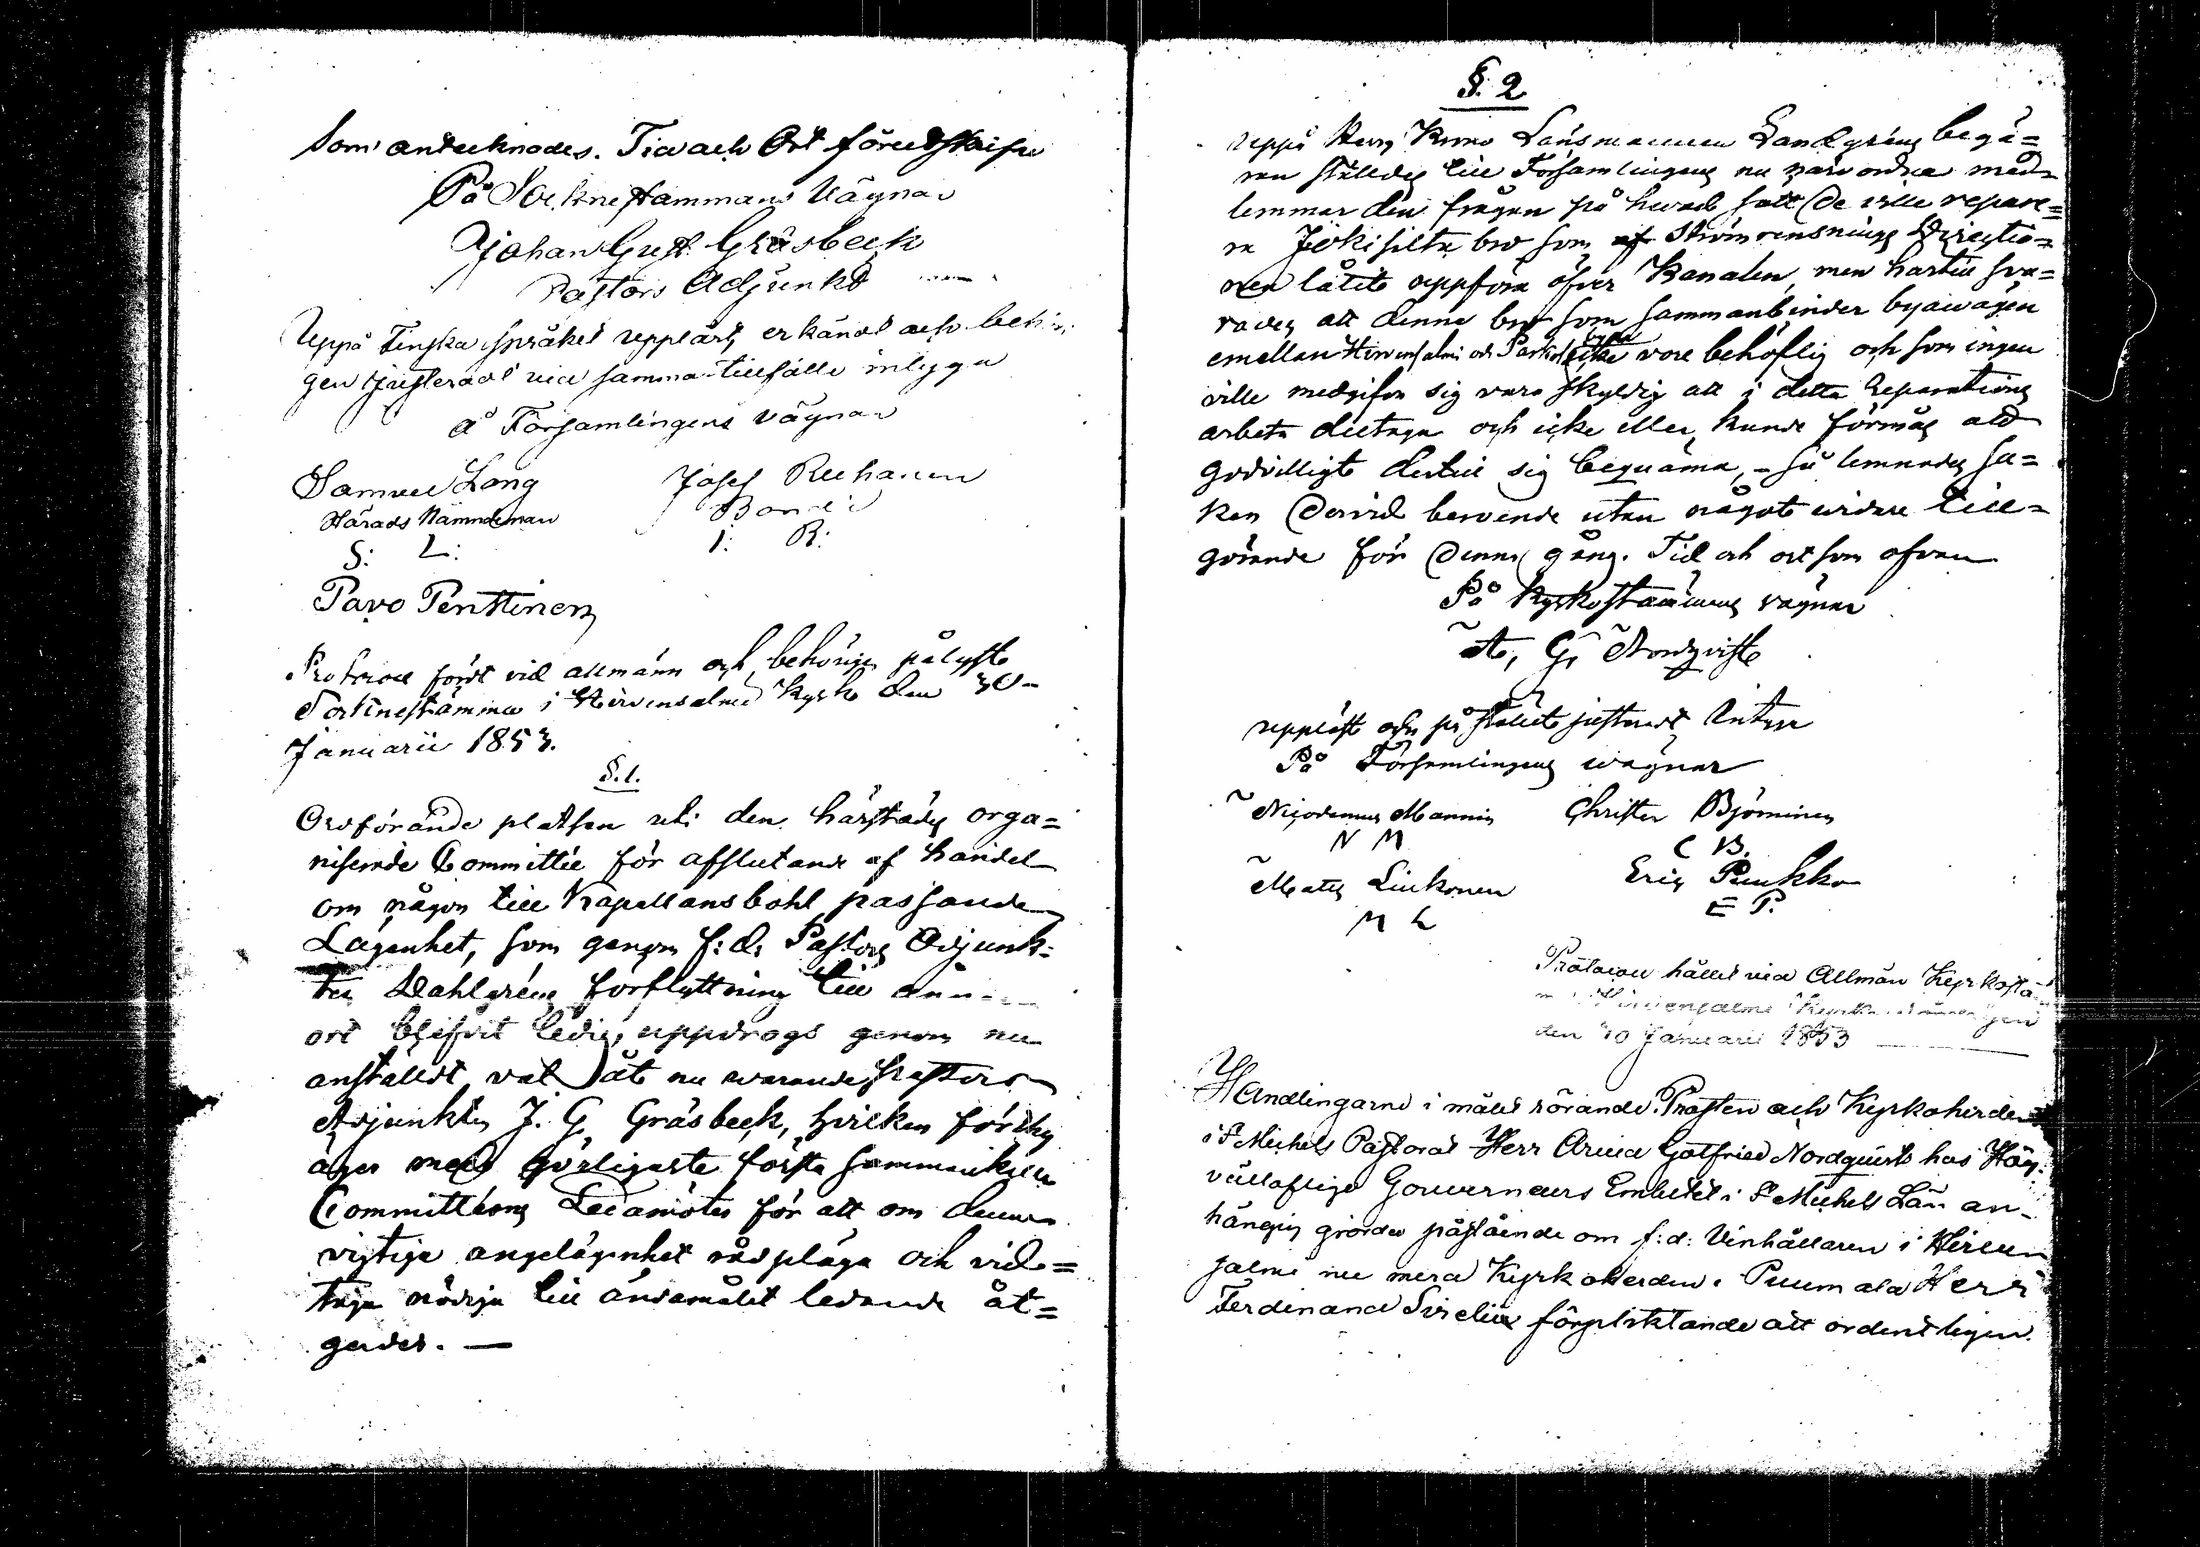 Som antecknades. Tid och Ort föreskrifne
På Sockne stammans Vägnar
Johan Gust. Gråsbeck
Pastors Adjunkt
Uppå Finska språket uppläst, erkändt och behöri-
gen justeradt vid samma tillfälle intyga
å Församlingens vägnar
Samuel Lång Josef Reehanen
Härads Nämndeman Bonde
S: L: I: R:
Pavo Penttinen
Protocoll fördt vid allmänn och behörigen pålyste
Sockinestämma i Hirvensalmi Kyrko den 30
Januarii 1853.
§.1.
Ordförande platsen uti den härstädes orga=
niserade Committée för afslutande af handel
om någon till Kapellansbohl passande
Lägenhet, som genom f: d: Pastors Adjunk=
ten Dahlgréns förflyttning till ann
ort blifvit ledig, uppdrogs genom nu
anställdt val åt nu warande Pastors
Adjunkten J. G. Gråsbeck, hvilken förthy
äger med görligaste första sammankalla
Committéens Ledamöter för att om denna
vigtiga angelägenhet rådpläga och vid=
taga nödiga till ändamålet ledande åt=
gerder. —
§. 2
Uppå Herr Krono Länsmannen Landgréns begä=
ran ställdes till Församlingens nu närvarande med=
lemmar den frågan på hvad sätt De ville repare=
ra Jokisilta bro som af Strömrensnings Directio=
nen låtit uppföra öfver Kanalen, men härtill sva=
rades att denna bro som sammanbinder byawägen
emellan Hirvensalmi och icke vore behöflig och som ingen
ville medgifva sig vara skyldig att i detta Reparations
arbete deltaga och icke eller kunde förmås att
godvilligt dertill sig beqväma, - så lemnades sa=
ken Dervid beroende utan något vidare till=
görande för Denna gång. Tid och ort som ofvan
På Kyrkostämmans vägnar
A. G. Nordqvist
uppläst och på stället justeradt Intyga
På Församlingens wägnar
Nicodemus Mannin Christer Björninen
N M C B.
Mats Liukonen Eric Puukko
M L E P.
Protocoll hållit vid Allmän Kyrkostä
m i Hirvensalmi Kyrka
den 30 Januarii 1853
Handlingarne i målet rörande Prosten och Kyrkoherden
i St Michels Pastorat Herr Arvid Gottfried Nordqvists hos Hög=
vällofliga Gouverneurs Embetet i St Michels Län an-
hängig gjorda påstående om f: d: Vinhållaren i Hirven
salmi nu mera Kyrkoherden i Puumala Herr
Ferdinand Sirelii förpliktande att ordentligen